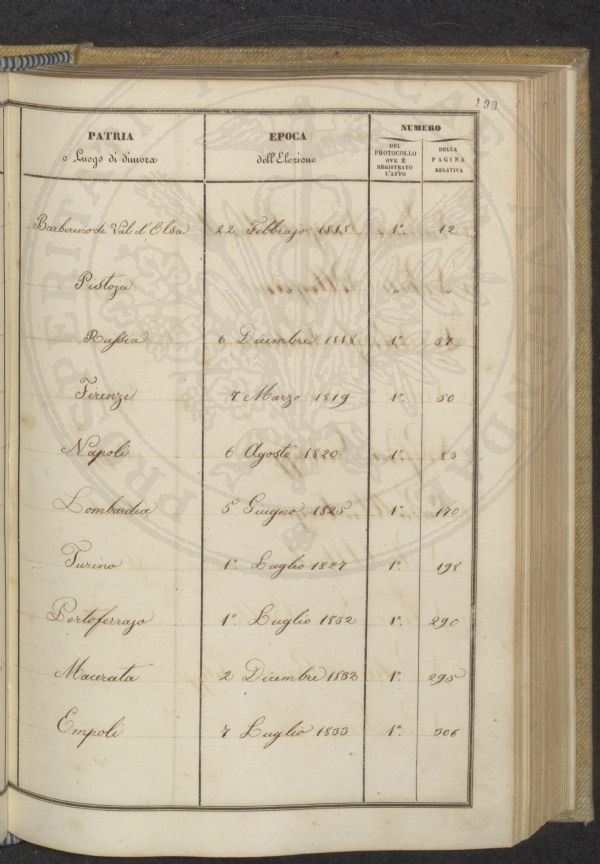 199
PATRIA
o Luogo di dimora
EPOCA
dell'Elezione
NUMERO
DEL
PROTOCOLLO
OVE È
REGISTRATO
L'ATTO
DELLA
PAGINA
RELATIVA
Barberino di Val d'Elsa 22 Febbrajo 1818 1º. 12
Pistoja " " "
Russia 6 Dicembre 1818 1º. 37
Firenze 7 Marzo 1819 1º. 50
Napoli 6 Agosto 1820 1º. 83
Lombardia 5 Giugno 1825 1º. 170
Turino 1º. Luglio 1827 1º. 198
Portoferrajo 1º. Luglio 1832 1º. 290
Macerata 2 Dicembre 1832 1º. 295
Empoli 7 Luglio 1833 1º. 306